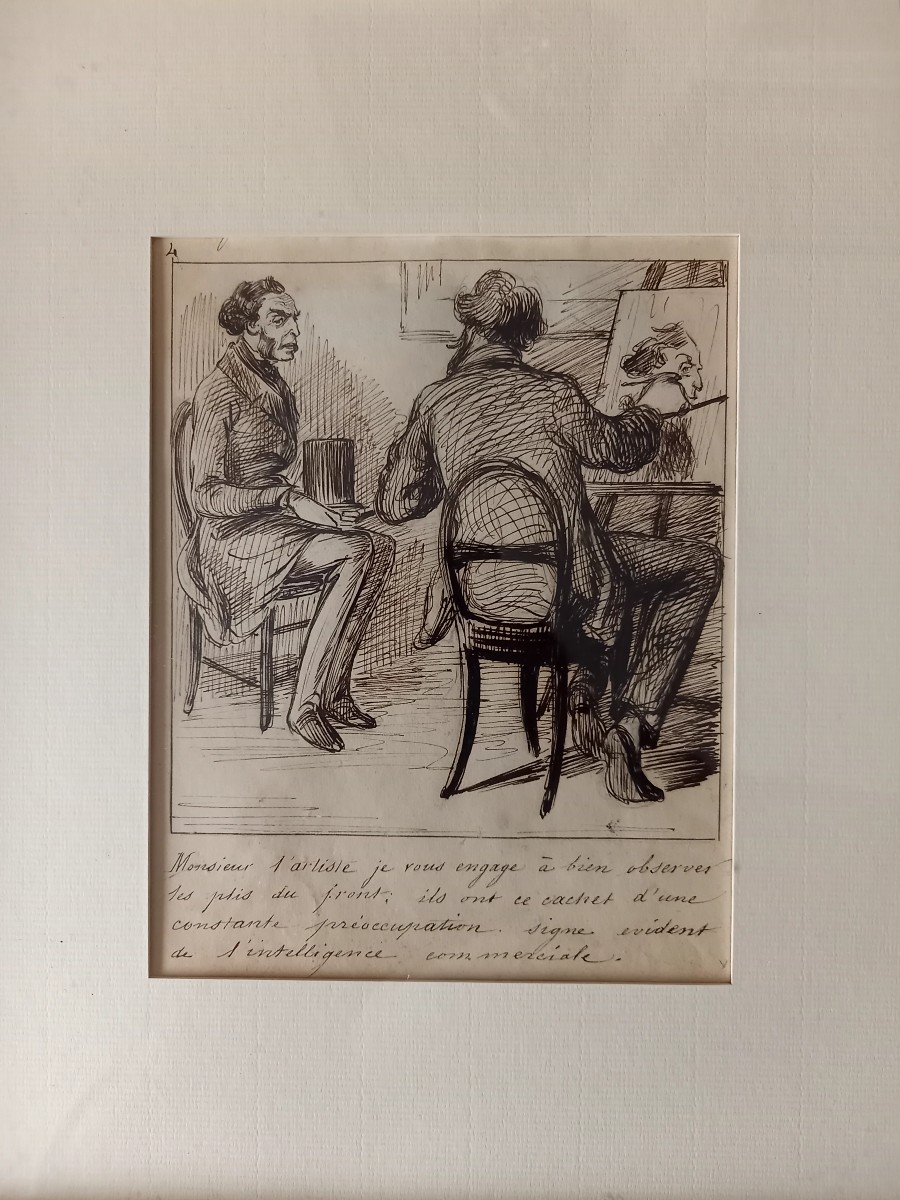 4
Monsieur l'artiste je vous engage à bien observer
les plis du front; ils ont ce cachet d'une
constante préoccupation. signe evident
de l'intelligence commerciale.